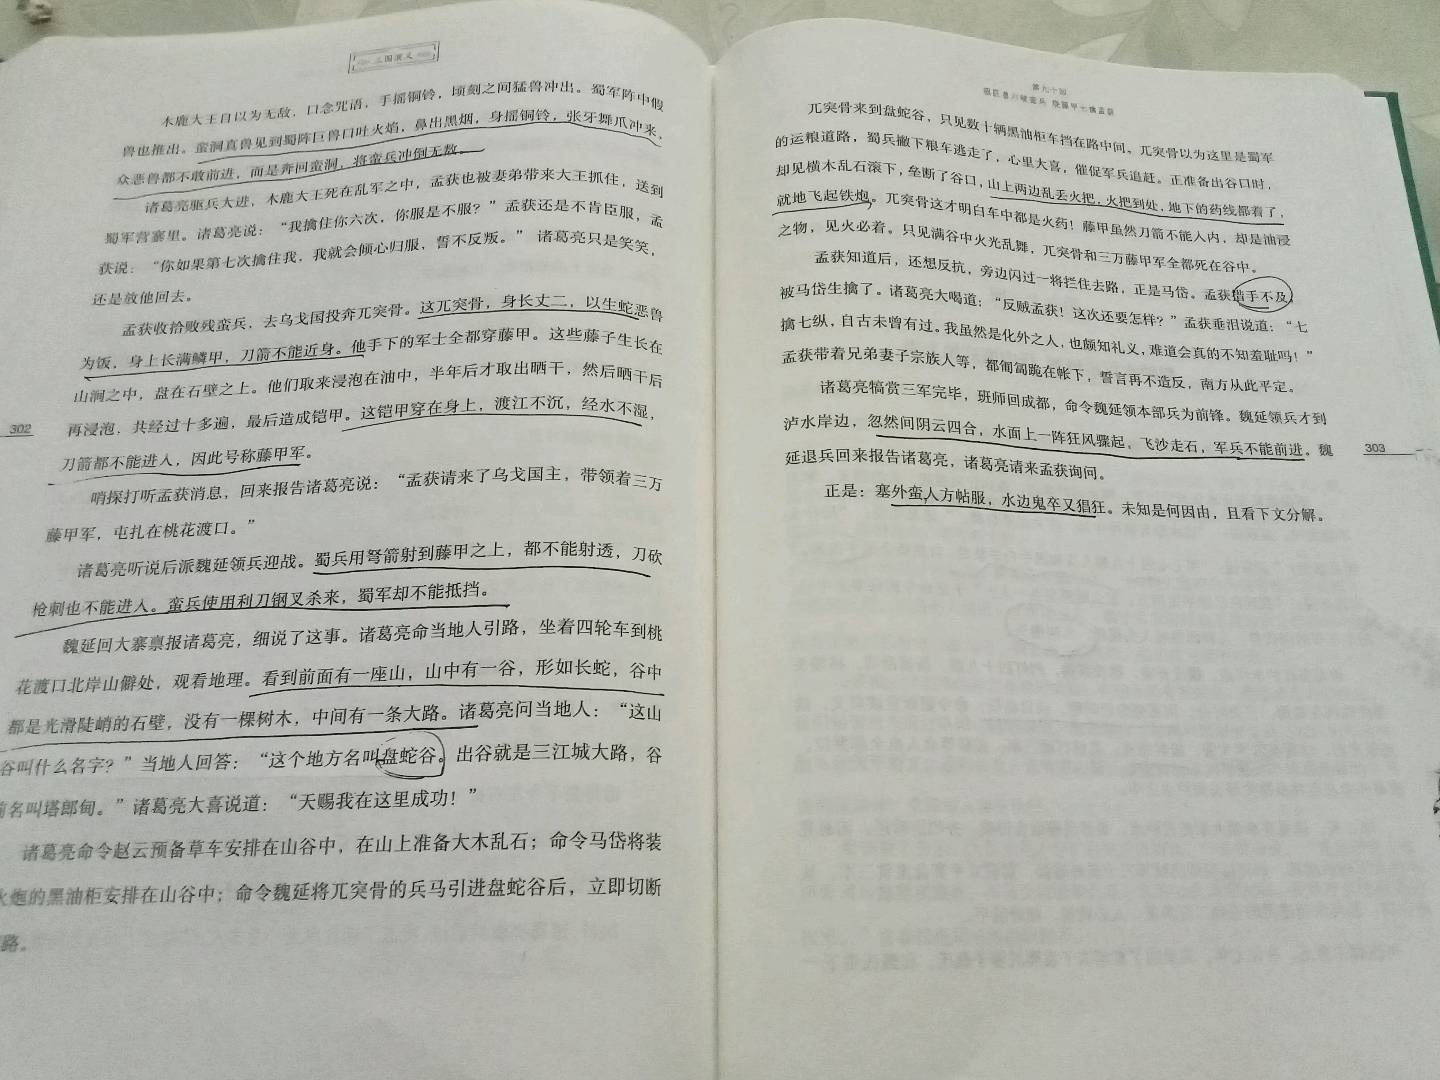 三国演义
木鹿大王自以为无敌，口念咒语，手摇铜铃，顷刻之间猛兽冲出。蜀军阵中假
兽也推出。蛮洞真兽见到蜀阵巨兽口吐火焰，鼻出黑烟，身摇铜铃，张牙舞爪冲来，
众恶兽都不敢前进，而是奔回蛮洞，将蛮兵冲倒无数。
诸葛亮驱兵大进，木鹿大王死在乱军之中，孟获也被妻弟带来大王抓住，送到
蜀军营寨里。诸葛亮说：“我擒住你六次，你服是不服？”孟获还是不肯臣服，孟
获说：“你如果第七次擒住我，我就会倾心归服，誓不反叛。”诸葛亮只是笑笑，
还是放他回去。
孟获收拾败残蛮兵，去乌戈国投奔兀突骨。这兀突骨，身长丈二，以生蛇恶兽
为饭，身上长满鳞甲，刀箭不能近身。他手下的军士全都穿藤甲。这些藤子生长在
山涧之中，盘在石壁之上。他们取来浸泡在油中，半年后才取出晒干，然后晒干后
再浸泡，共经过十多遍，最后造成铠甲。这铠甲穿在身上，渡江不沉，经水不湿，
302
刀箭都不能进入，因此号称藤甲军。
哨探打听孟获消息，回来报告诸葛亮说：“孟获请来了乌戈国主，带领着三万
藤甲军，屯扎在桃花渡口。”
诸葛亮听说后派魏延领兵迎战。蜀兵用弩箭射到藤甲之上，都不能射透，刀砍
枪刺也不能进入。蛮兵使用利刀钢叉杀来，蜀军却不能抵挡。
魏延回大寨禀报诸葛亮，细说了这事。诸葛亮命当地人引路，坐着四轮车到桃
花渡口北岸山僻处，观看地理。看到前面有一座山，山中有一谷，形如长蛇，谷中
都是光滑陡峭的石壁，没有一棵树木，中间有一条大路。诸葛亮问当地人：“这山
谷叫什么名字？”当地人回答：“这个地方名叫盘蛇谷。出谷就是三江城大路，谷
前名叫塔郎甸。”诸葛亮大喜说道：“天赐我在这里成功！”
诸葛亮命令赵云预备草车安排在山谷中，在山上准备大木乱石；命令马岱将装
火炮的黑油柜安排在山谷中；命令魏延将兀突骨的兵马引进盘蛇谷后，立即切断
路。
第九十回
驱巨兽六破蛮兵 烧藤甲七擒孟获
兀突骨来到盘蛇谷，只见数十辆黑油柜车挡在路中间。兀突骨以为这里是蜀军
的运粮道路，蜀兵撇下粮车逃走了，心里大喜，催促军兵追赶。正准备出谷口时，
却见横木乱石滚下，垒断了谷口，山上两边乱丢火把，火把到处，地下的药线都着了，
就地飞起铁炮。兀突骨这才明白车中都是火药！藤甲虽然刀箭不能入内，却是油浸
之物，见火必着。只见满谷中火光乱舞，兀突骨和三万藤甲军全都死在谷中。
孟获知道后，还想反抗，旁边闪过一将拦住去路，正是马岱。孟获措手不及，
被马岱生擒了。诸葛亮大喝道：“反贼孟获！这次还要怎样？”孟获垂泪说道：“七
擒七纵，自古未曾有过。我虽然是化外之人，也颇知礼义，难道会真的不知羞耻吗！”
孟获带着兄弟妻子宗族人等，都匍匐跪在帐下，誓言再不造反，南方从此平定。
诸葛亮犒赏三军完毕，班师回成都，命令魏延领本部兵为前锋。魏延领兵才到
泸水岸边，忽然间阴云四合，水面上一阵狂风骤起，飞沙走石，军兵不能前进。魏
303
延退兵回来报告诸葛亮，诸葛亮请来孟获询问。
正是：塞外蛮人方帖服，水边鬼卒又猖狂。未知是何因由，且看下文分解。